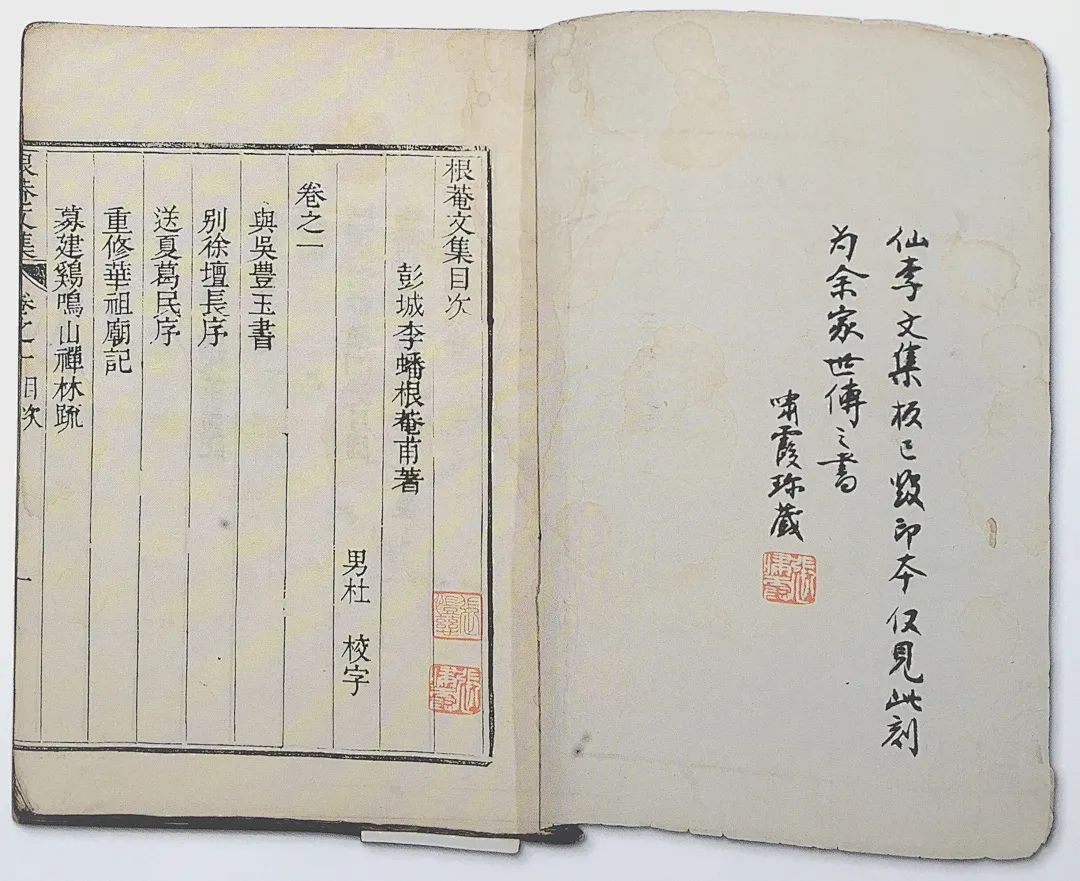 仙李文集板已毀印本仅見此刻
为余家世傳之書
啸霞珎藏
根菴文集目次
彭城李蟠根菴甫著
男杜 校字
卷之一
與吳豊玉書
別徐壇長序
送夏葛民序
重修華祖廟記
募建鷄鳴山禪林疏
根菴文集 卷之一目次 一